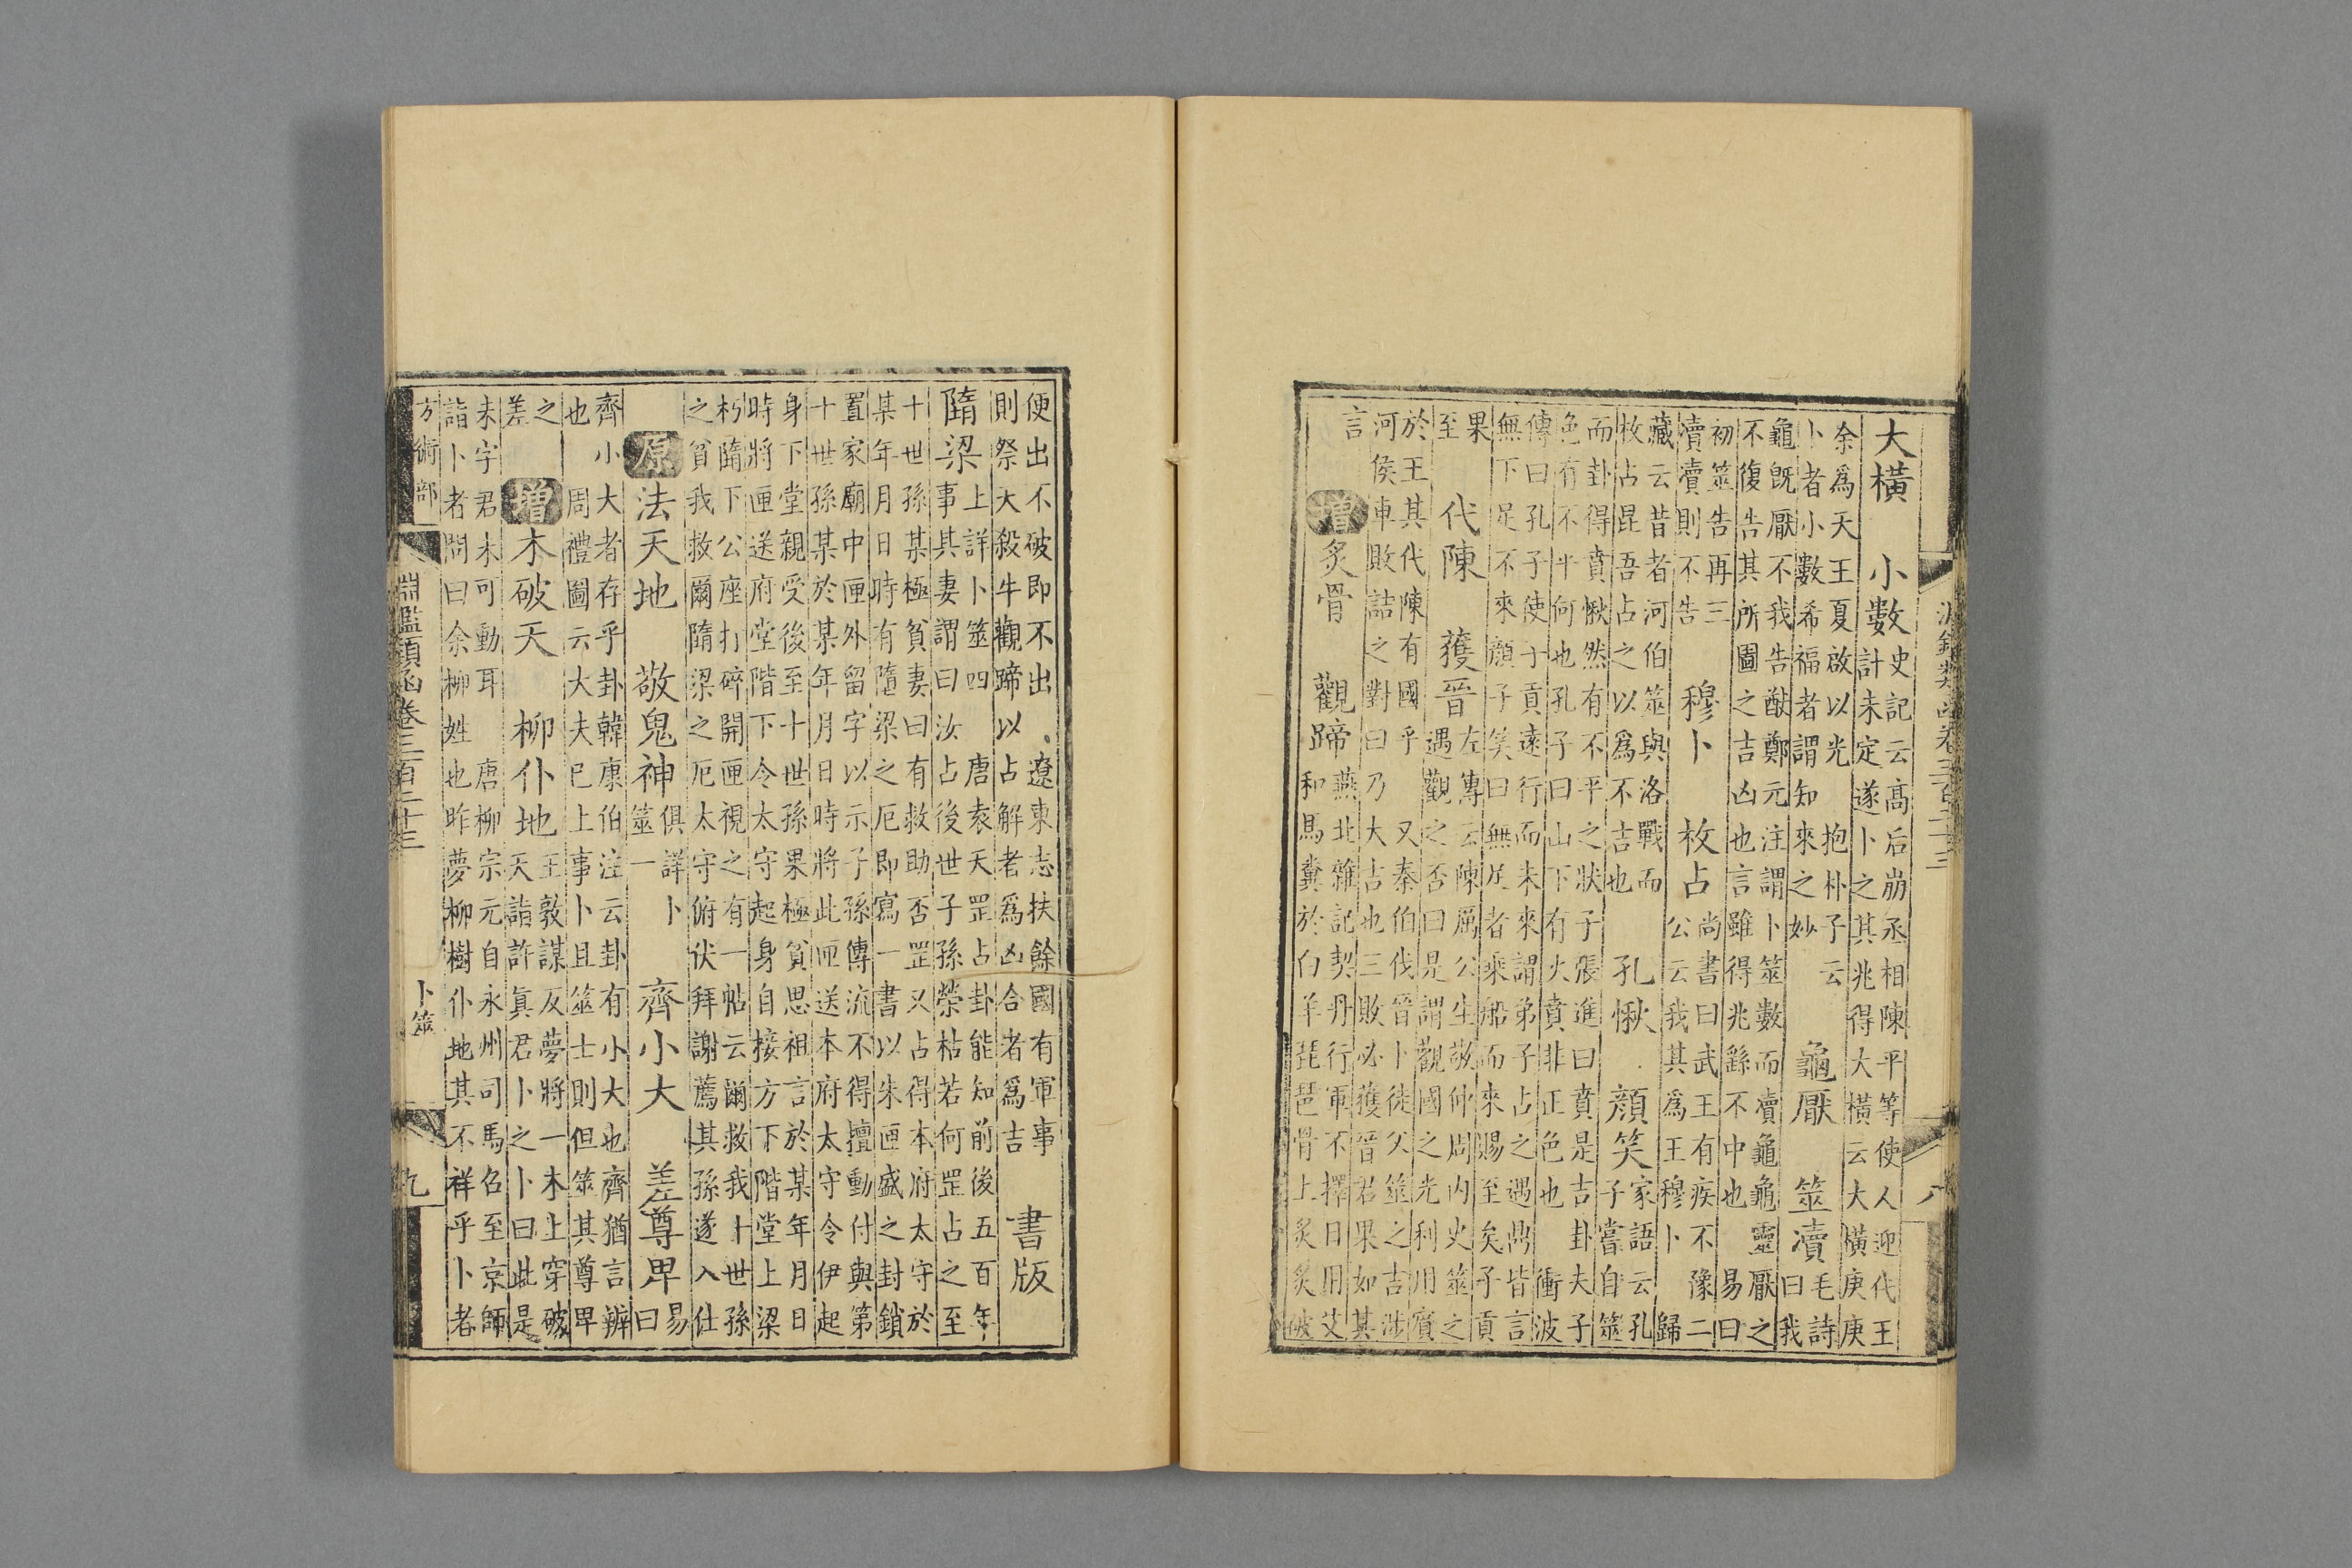 大橫　小數
史記云高后崩丞相陳平等使人迎代王
計未定遂卜之其兆得大橫云大橫庚庚
余為天王夏啟以光　抱朴子云
卜者小數希福者謂知來之妙
龜厭　筮瀆
毛詩
曰我
龜旣厭不我告猷鄭元注謂卜筮數而瀆龜龜靈厭之
不復告其所圖之吉凶也言雖得兆繇不中也　易曰
初筮告再三
瀆瀆則不告
穆卜　枚占
尚書曰武王有疾不豫二
公云我其爲王穆卜　歸
藏云昔者河伯筮與洛戰而
枚占昆吾占之以爲不吉也
孔愀　顏笑
家語云孔
子嘗自筮
而卦得賁愀然有不平之狀子張進曰賁是吉卦夫子
色有不平何也孔子曰山下有火賁非正色也　衝波
傳曰孔子使子貢遠行而未來謂弟子占之遇鼎皆言
無下足不來顏子笑曰無足者乘船而來賜至矣子貢
果
至
代陳　獲晉
左傳云陳厲公生敬仲周內史筮之
遇觀之否曰是謂觀國之光利用賓
於王其代陳有國乎　又秦伯伐晉卜徒父筮之吉涉
河侯車敗詰之對曰乃大吉也三敗必獲晉君果如其
言
增　炙骨　觀蹄
燕北雜記契丹行軍不擇日用艾
和馬糞於白羊琵琶骨上炙炙破
便出不破即不出　遼東志扶餘國有軍事
則祭天殺牛觀蹄以占解者爲凶合者爲吉
書版
隋梁
上詳卜筮四　唐袁天罡占卦能知前後五百年
事其妻謂曰汝占後世子孫榮枯若何罡占之至
十世孫某極貧妻曰有救助否罡又占得本府太守於
某年月日時有隋梁之厄即寫一書以朱匣盛之封鎖
置家廟中匣外留字以示子孫傳流不得擅動付與第
十世孫某於某年月日時將此匣送本府太守令伊起
身下堂親受後至十世孫果極貧思祖言於某年月日
時將匣送府堂階下令太守起身自接方下階堂上梁
朽隋下公座打碎開匣視之有一帖云爾救我十世孫
之貧我救爾隋梁之厄太守俯伏拜謝薦其孫遂入仕
原　法天地　敬鬼神
俱詳卜
筮一
齊小大　差尊卑
易
曰
齊小大者存乎卦韓康伯注云卦有小大也齊猶言辨
也　周禮圖云大夫已上事卜且筮士則但筮其尊卑
之
差
增　木破天　柳仆地
王敦謀反夢將一木上穿破
天詣許眞君卜之卜曰此是
未字君未可動耳　唐柳宗元自永州司馬召至京師
詣卜者問曰余柳姓也昨夢柳樹仆地其不祥乎卜者
方術部
淵鑑類函卷三百二十三
卜筮
九